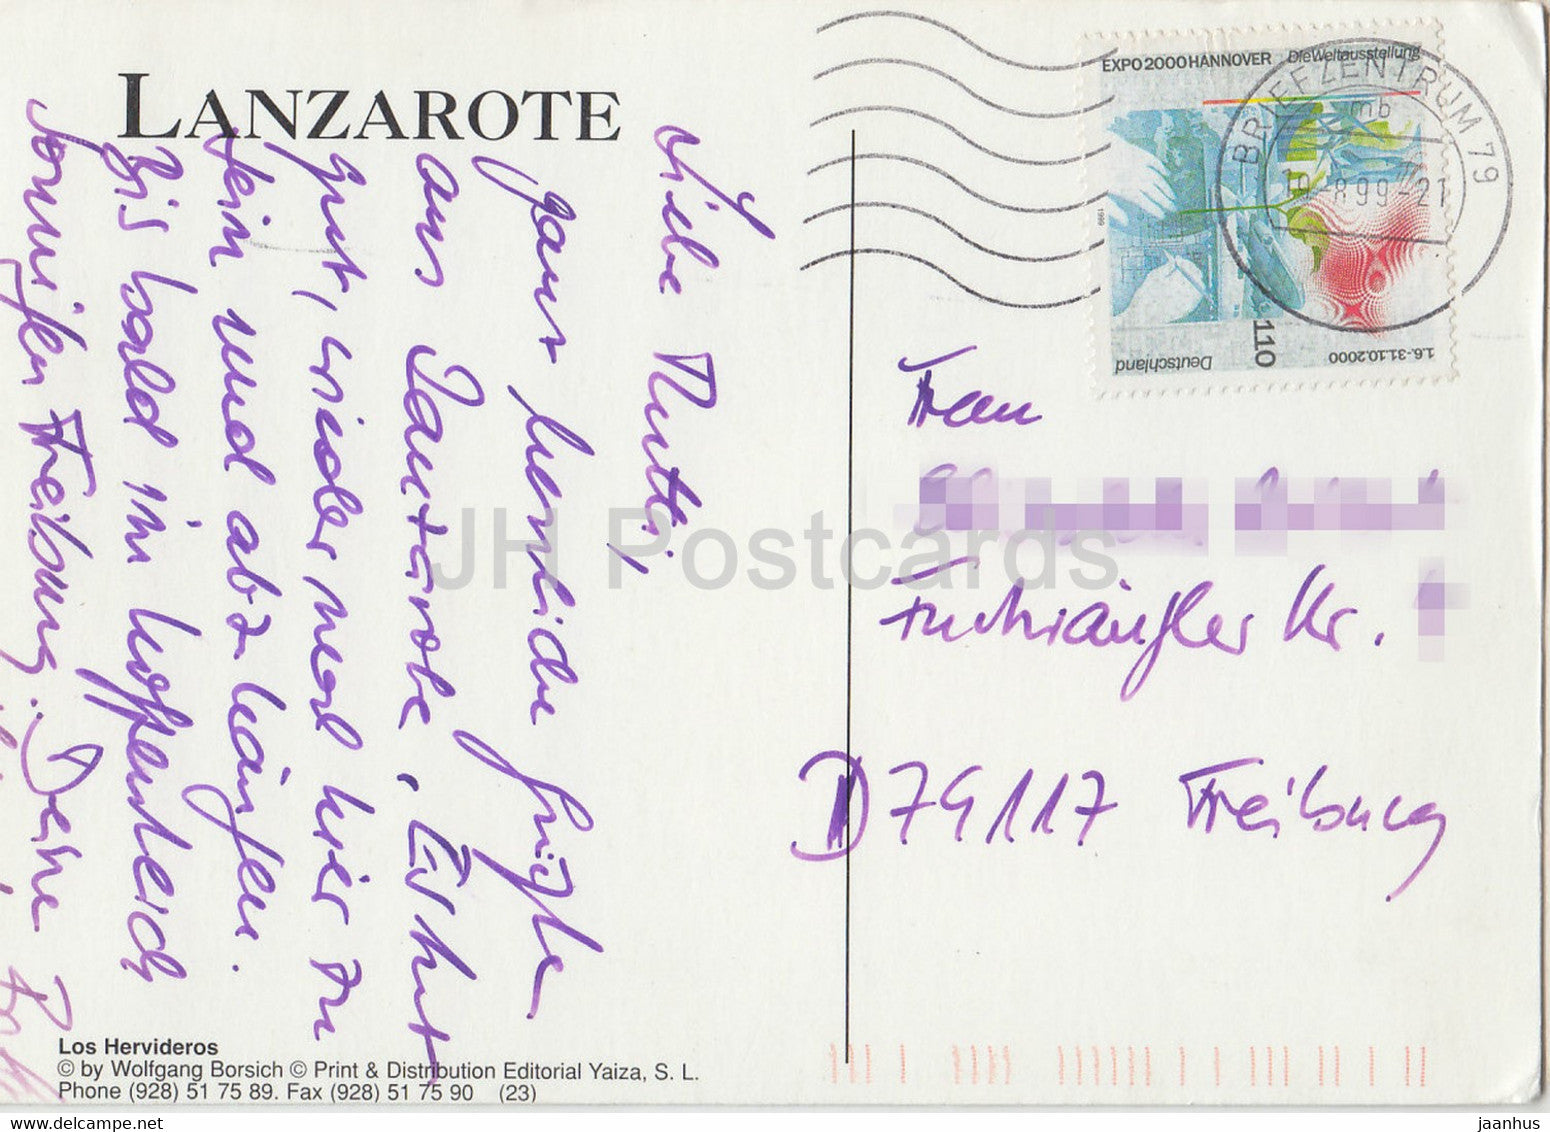 LANZAROTE
Liebe Mutti,
ganz herzliche Grüße
aus Lanzarote. Es tut
gut, wieder mal hier zu
sein und abzuhängen.
Bis bald im hoffentlich
sonnigen Freiburg. Deine
Los Hervideros
© by Wolfgang Borsich © Print & Distribution Editorial Yaiza, S. L.
Phone (928) 51 75 89. Fax (928) 51 75 90 (23)
EXPO2000HANNOVER DieWeltausstellung
BRIEFZENTRUM 79
mb
-8.99-21
1999
110
Deutschland
1.6.-31.10.2000
Frau
Nr.
D 79117 Freiburg
JH Postcards
the-bestsellers.com
jaanhus